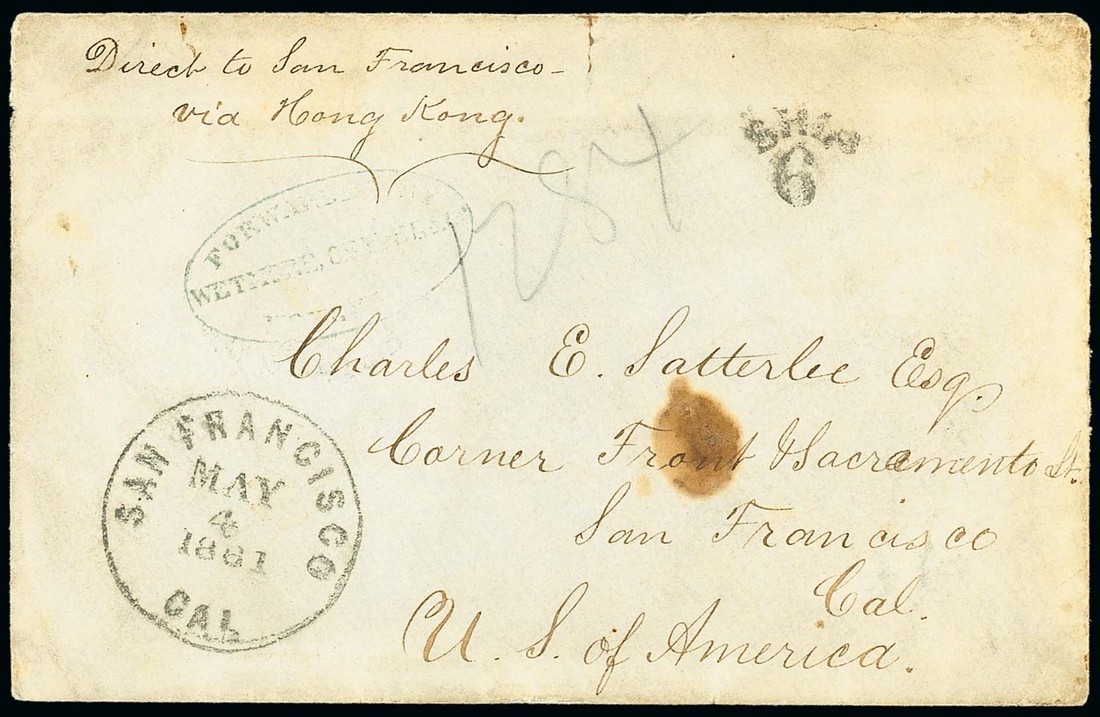 Direct to San Francisco-
via Hong Kong.
SHIP
6
FORWARDED
WETMORE,
Charles E. Satterlee Esq.
Corner Front & Sacramento St.
San Francisco
Cal.
U. S. of America.
SAN FRANCISCO
MAY
4
1861
CAL